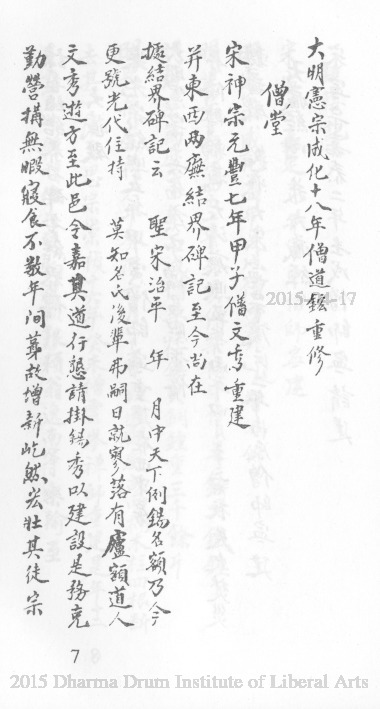 大明憲宗成化十八年僧道鉉重修
僧堂
宋神宗元豐七年甲子僧文秀重建
并東西兩廡結界碑記至今尚在
據結界碑記云 聖宋治平 年 月中天下例錫名額乃今
更號光代住持 莫知名氏後輩弗嗣日就寥落有廬額道人
文秀遊方至此邑令嘉其道行懇請掛錫秀以建設是務克
勤營搆無暇寢食不数年間葺故增新屹然宏壯其徒宗
7
2015-11-17
2015 Dharma Drum Institute of Liberal Arts